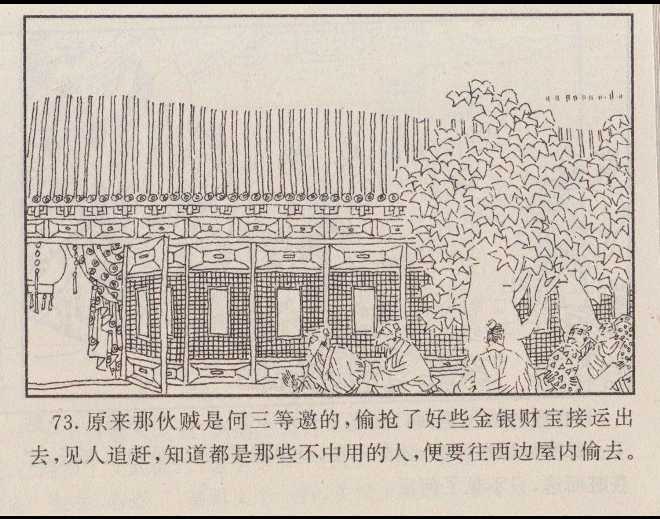 73. 原来那伙贼是何三等邀的，偷抢了好些金银财宝接运出
去，见人追赶，知道都是那些不中用的人，便要往西边屋内偷去。